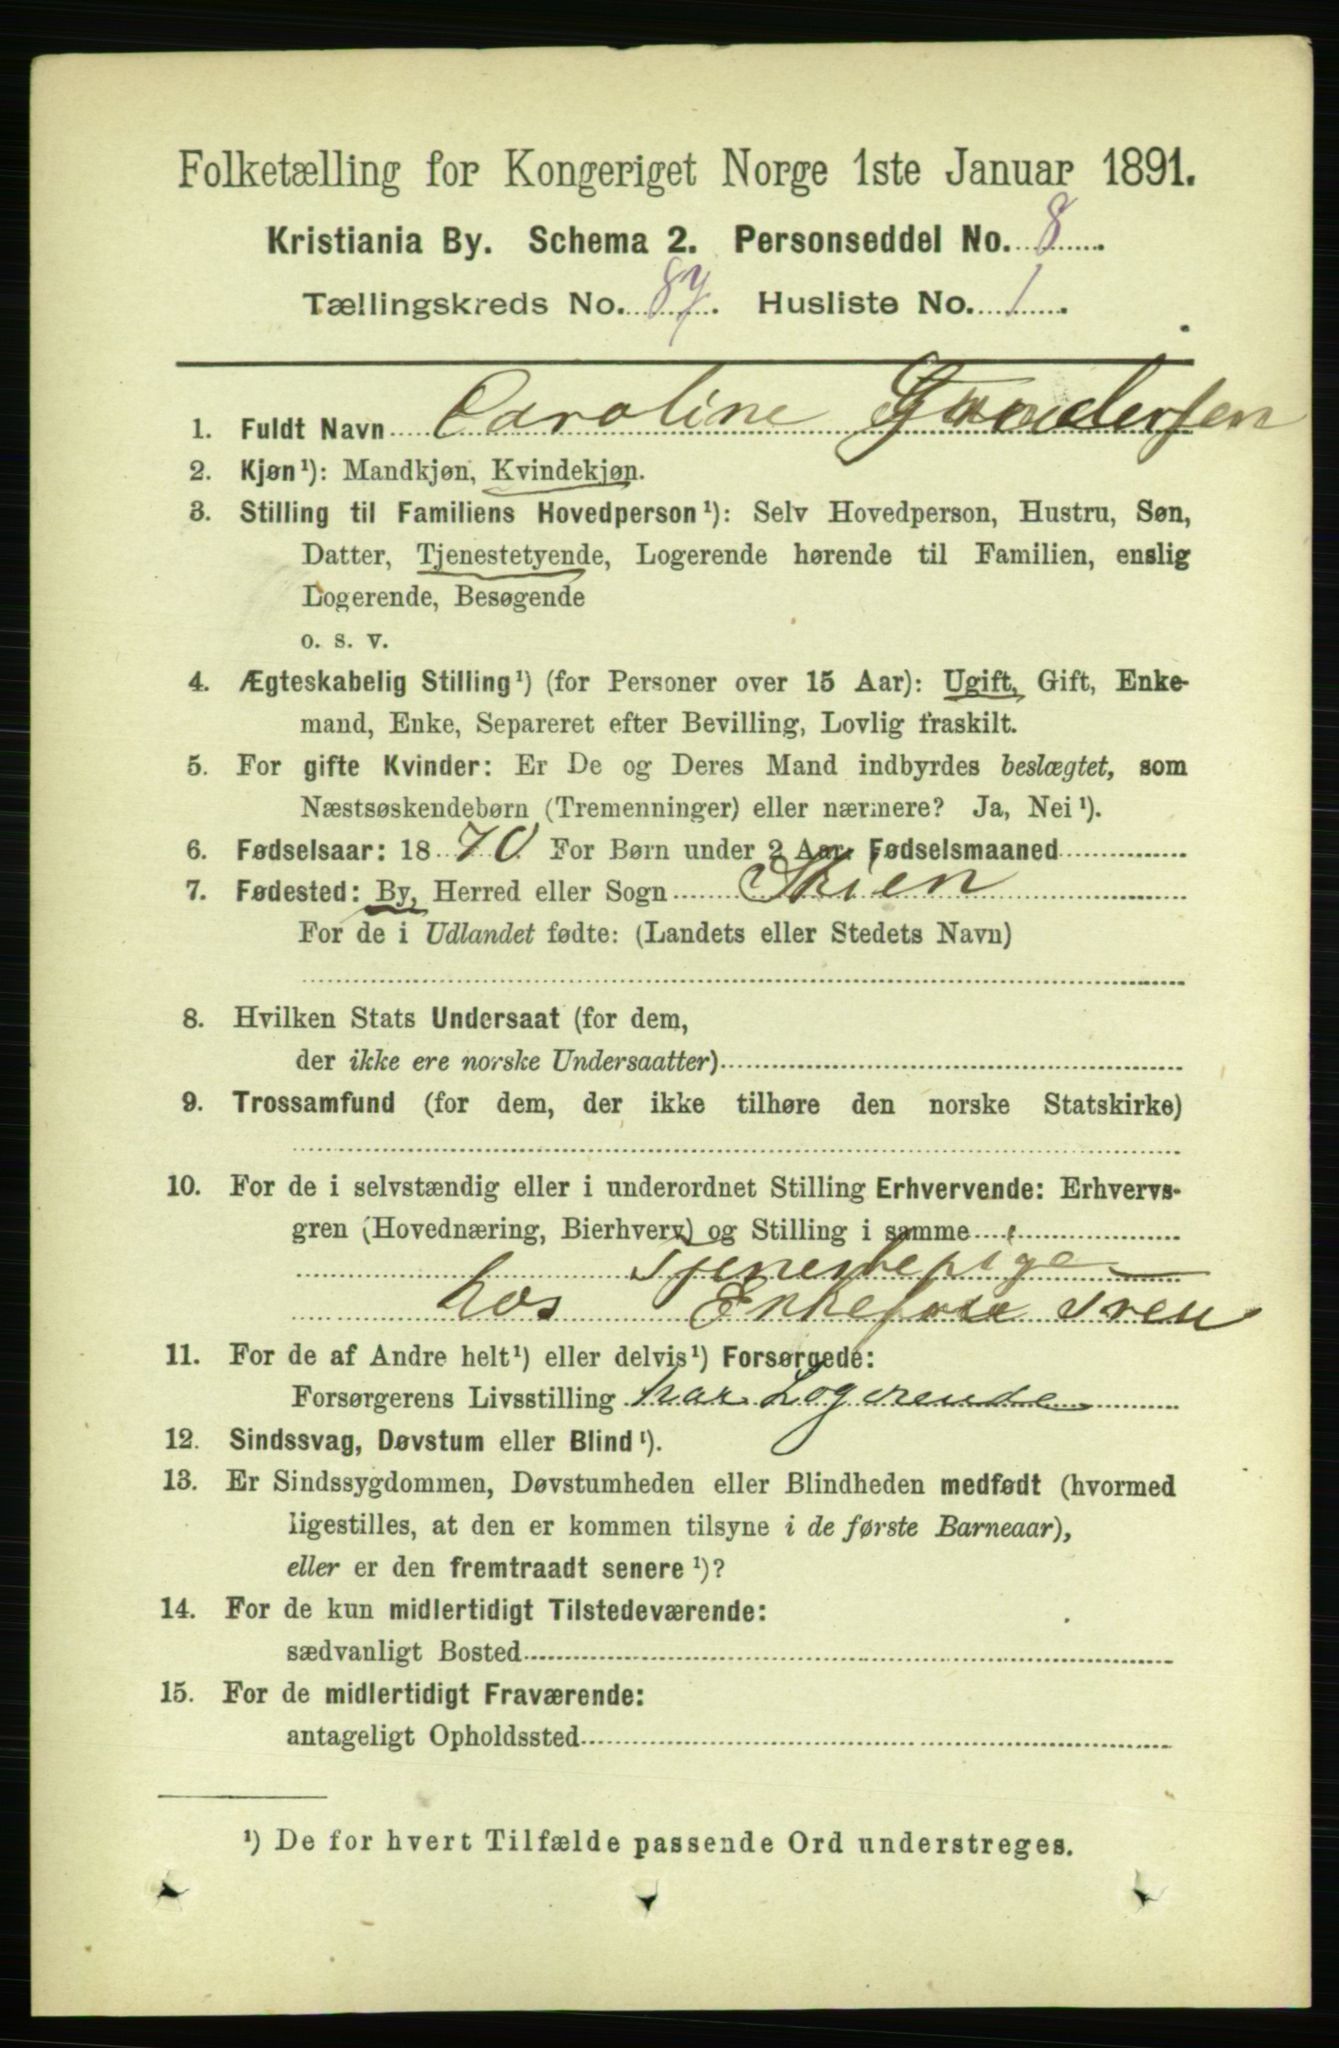 Folketælling for Kongeriget Norge 1ste Januar 1891.
Kristiania By. Schema 2. Personseddel No. 8
Tællingskreds No. 87. Husliste No. 1.
1. Fuldt Navn Caroline
2. Kjøn¹): Mandkjøn, Kvindekjøn.
3. Stilling til Familiens Hovedperson¹): Selv Hovedperson, Hustru, Søn,
Datter, Tjenestetyende, Logerende hørende til Familien, enslig
Logerende, Besøgende
o. s. v.
4. Ægteskabelig Stilling¹) (for Personer over 15 Aar): Ugift, Gift, Enke-
mand, Enke, Separeret efter Bevilling, Lovlig fraskilt.
5. For gifte Kvinder: Er De og Deres Mand indbyrdes beslægtet, som
Næstsøskendebørn (Tremenninger) eller nærmere? Ja, Nei¹).
6. Fødselsaar: 1870 For Børn under 2 Aar, Fødselsmaaned
7. Fødested: By, Herred eller Sogn Skien
For de i Udlandet fødte: (Landets eller Stedets Navn)
8. Hvilken Stats Undersaat (for dem,
der ikke ere norske Undersaatter)
9. Trossamfund (for dem, der ikke tilhøre den norske Statskirke)
10. For de i selvstændig eller i underordnet Stilling Erhvervende: Erhvervs-
gren (Hovednæring, Bierhverv) og Stilling i samme
Tjenestepige
hos Enkefrue
11. For de af Andre helt¹) eller delvis¹) Forsørgede:
Forsørgerens Livsstilling har Logerende
12. Sindssvag, Døvstum eller Blind¹).
13. Er Sindssygdommen, Døvstumheden eller Blindheden medfødt (hvormed
ligestilles, at den er kommen tilsyne i de første Barneaar),
eller er den fremtraadt senere¹)?
14. For de kun midlertidigt Tilstedeværende:
sædvanligt Bosted
15. For de midlertidigt Fraværende:
antageligt Opholdssted
¹) De for hvert Tilfælde passende Ord understreges.